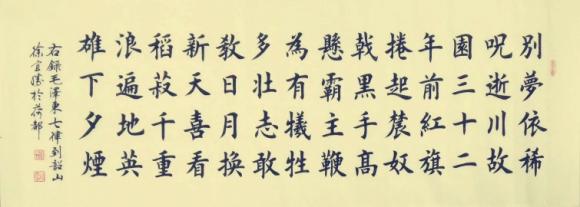 別夢依稀
呪逝川故
園三十二
年前紅旗
捲起農奴
戟黑手髙
懸霸主鞭
為有犧牲
多壯志敢
教日月換
新天喜看
稻菽千重
浪遍地英
雄下夕煙
右錄毛澤東七律到韶山
徐於都